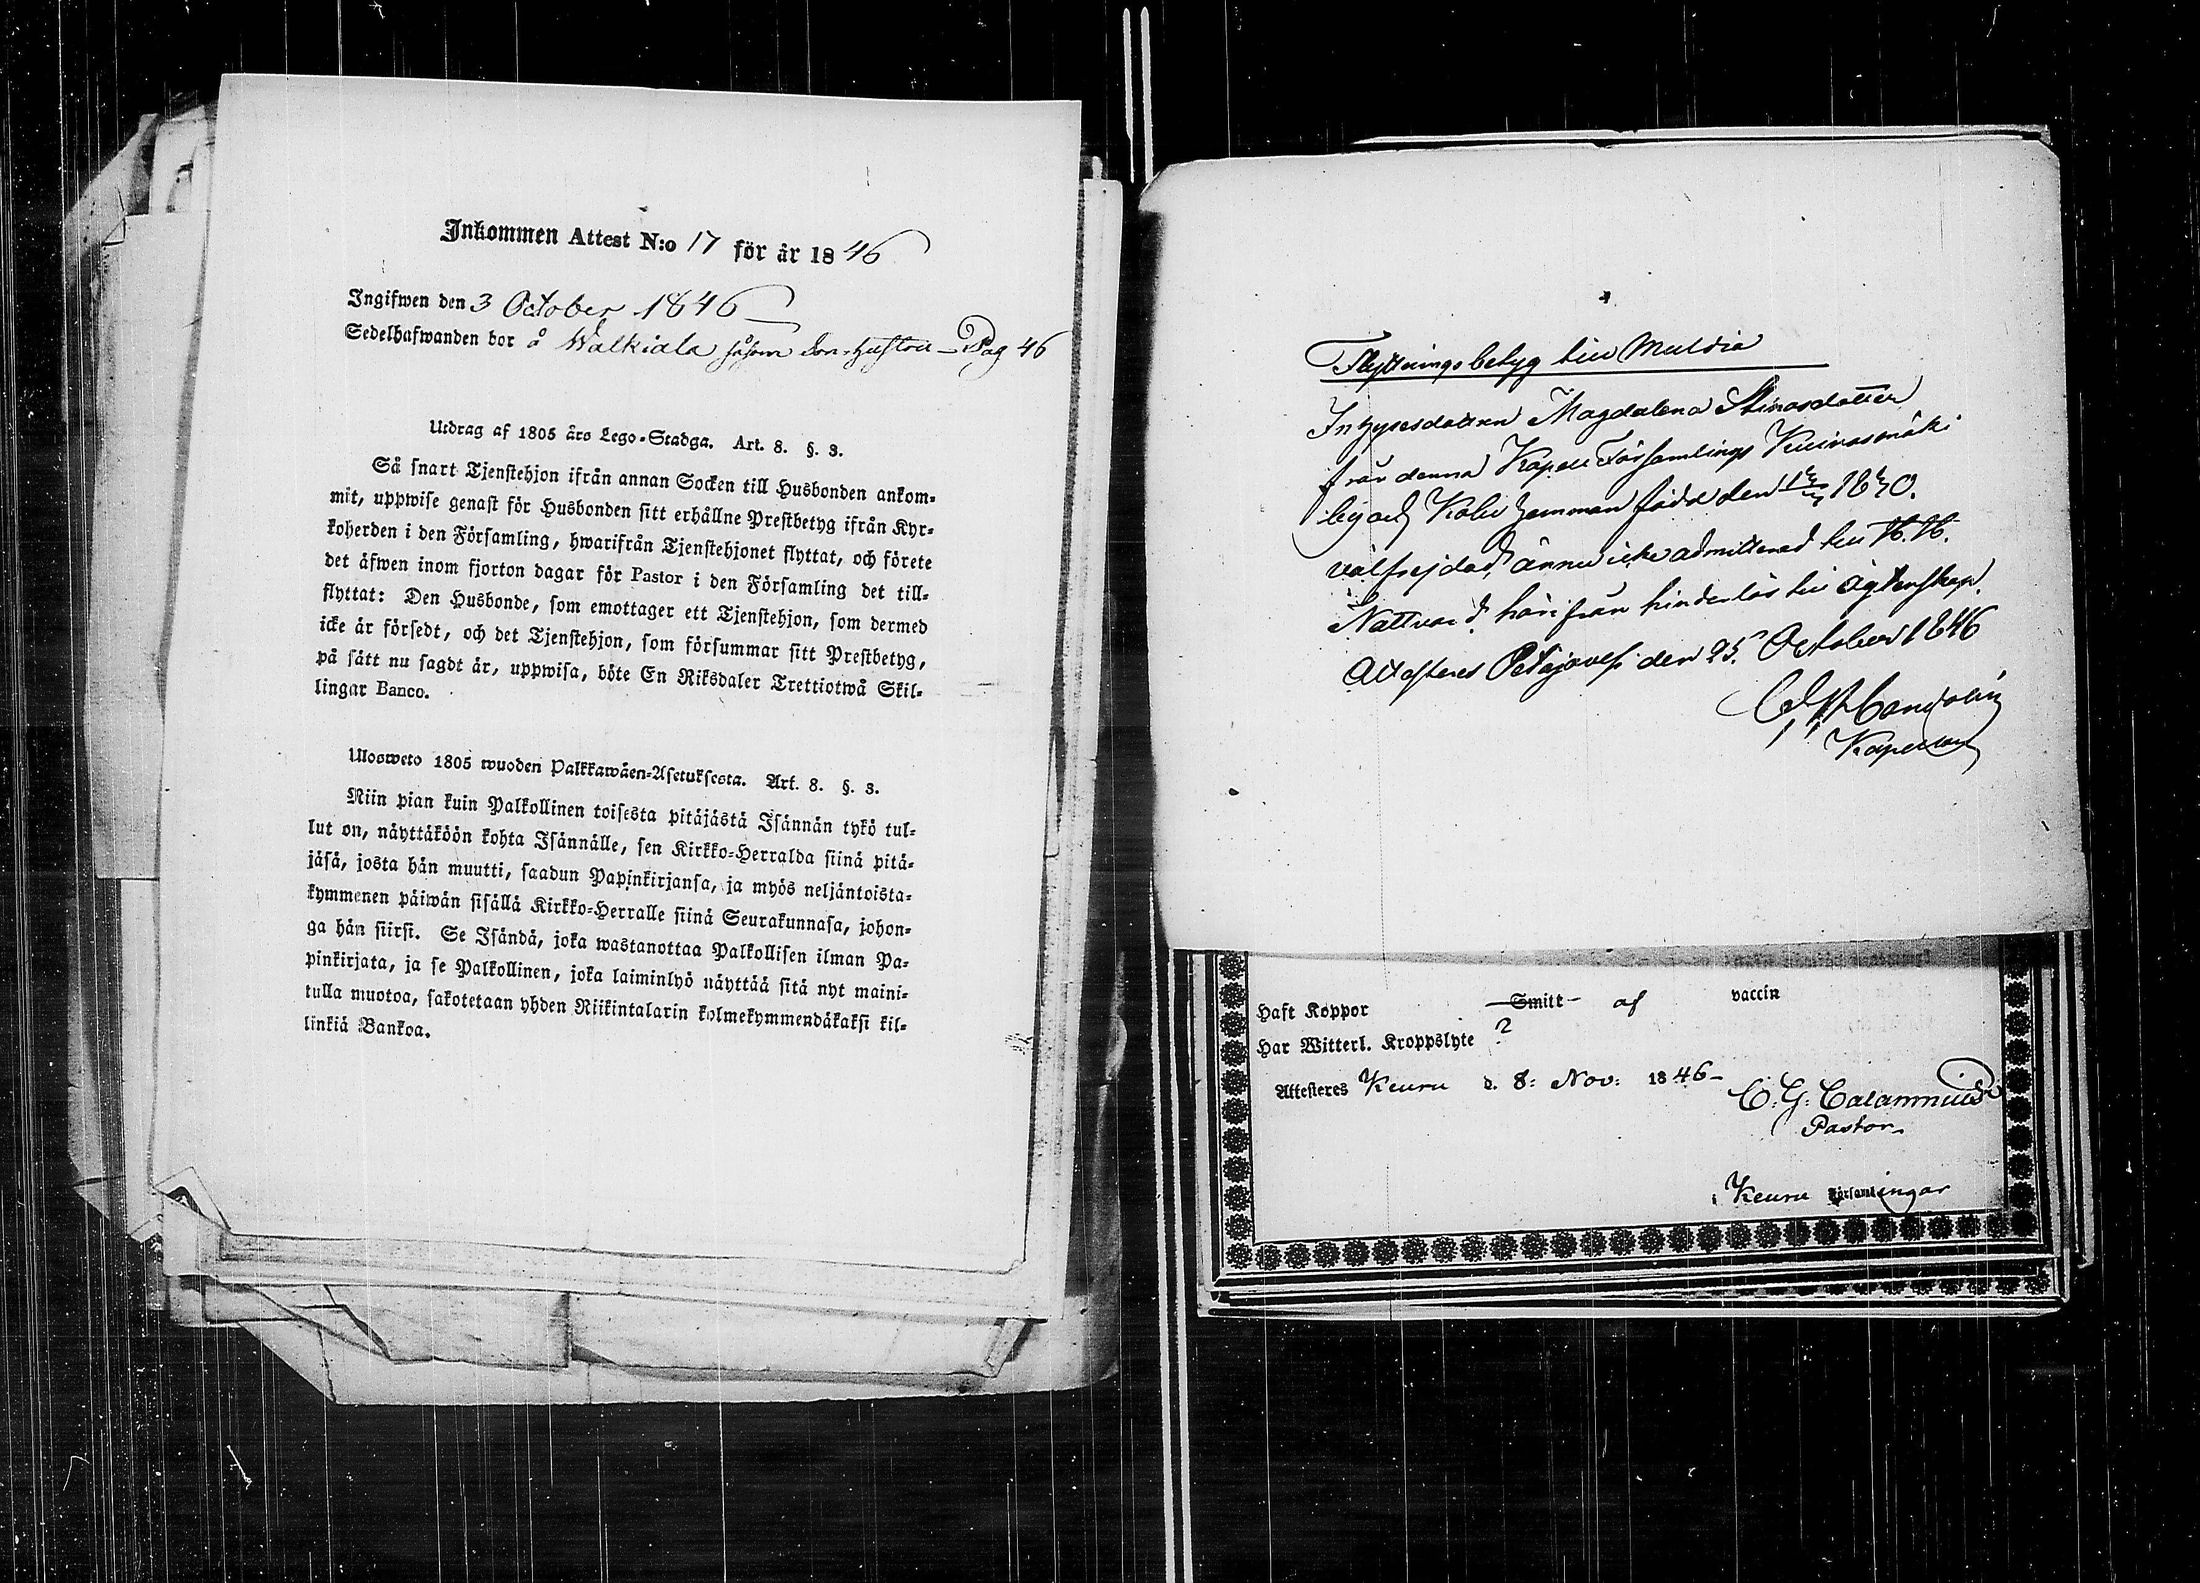 Inkommen Attest N:o 17 för år 1846
Ingifwen den 3 October 1846
Sedelhafwanden bor å Walkiala såsom Son-Hustru - Pag 46
Utdrag af 1805 års Lego-Stadga. Art. 8. §. 3.
Så snart Tjenstehjon ifrån annan Socken till Husbonden ankom-
mit, uppwise genast för Husbonden sitt erhållne Prestbetyg ifrån Kyr-
koherden i den Församling, hwarifrån Tjenstehjonet flyttat, och förete
det äfwen inom fjorton dagar för Pastor i den Församling det till-
flyttat: Den Husbonde, som emottager ett Tjenstehjon, som dermed
icke är försedt, och det Tjenstehjon, som försummar sitt Prestbetyg,
på sätt nu sagdt är, uppwisa, böte En Riksdaler Trettiotwå Skil-
lingar Banco.
Ulosweto 1805 wuoden Palkkawäen-Asetuksesta. Art. 8. §. 3.
Niin pian kuin Palkollinen toisesta pitäjästä Isännän tykö tul-
lut on, näyttäköön kohta Isännälle, sen Kirkko-Herralda siinä pitä-
jäsä, josta hän muutti, saadun Papinkirjansa, ja myös neljäntoista-
kymmenen päiwän sisällä Kirkko-Herralle siinä Seurakunnasa, johon-
ga hän siirsi. Se Isändä, joka wastanottaa Palkollisen ilman Pa-
pinkirjata, ja se Palkollinen, joka laiminlyö näyttää sitä nyt maini-
tulla muotoa, sakotetaan yhden Riikintalarin kolmekymmendäkaksi kil-
linkiä Bankoa.
Flyttningsbetyg till Muldia
Inhysesdottren Magdalena Stinasdotter
från denna Kapell Församlings Kuivasmäki
by och Kolu hemman född den 1830.
välfrejdad, ännu icke admitterad till H. H.
Nattvard, härifrån hinderlös till ägtenskap.
Attesteras Petäjäves den 25 October 1846
Kapellan
Haft Koppor Smitt af vaccin
Har Witterl. Kroppslyte ?
Attesteres Keuru d. 8: Nov: 1846
C. G. Calamnius
Pastor
i Keuru Församlingar